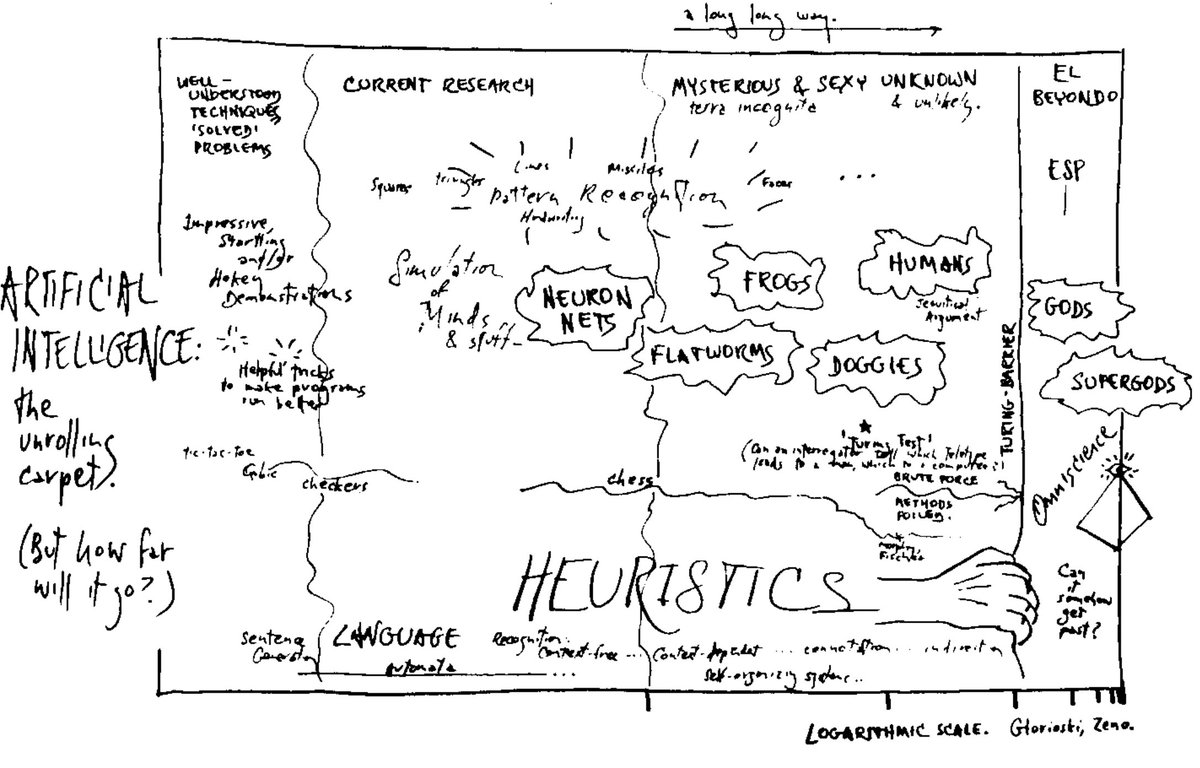 a long long way.
WELL-
UNDERSTOOD
TECHNIQUES
'SOLVED'
PROBLEMS
CURRENT RESEARCH
MYSTERIOUS & SEXY UNKNOWN
terra incognita
& unlikely.
EL
BEYONDO
ESP
Squares
triangles
Lines
Missiles
Faces
...
Pattern Recognition
Handwriting
Impressive,
Startling
and/or
Hokey
Demonstrations
Simulation
of
Minds
& stuff
NEURON
NETS
FROGS
HUMANS
Jesuitical
Argument
FLATWORMS
DOGGIES
GODS
SUPERGODS
ARTIFICIAL
INTELLIGENCE:
the
unrolling
carpet.
(But how far
will it go?)
'Helpful' tricks
to make programs
run better
TURING-BARRIER
'Turing Test'
(Can an interrogator tell which Teletype
leads to a man, which to a computer?)
tic-tac-toe
Cubic
checkers
chess
BRUTE FORCE
METHODS
FOILED.
Fischer
Omniscience
HEURISTICS
Can
it
somehow
get
past?
Sentence
Generation
LANGUAGE
automata
...
Recognition:
Context-free ...
Context-dependent ... connotation ... indirection
Self-organizing systems..
LOGARITHMIC SCALE. Glorioski, Zeno.